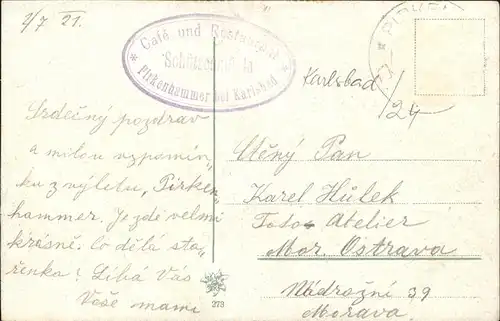 2/7 21.
* Café und Restaurant *
Pirkenhammer bei Karlsbad
Karlsbad
1/24
Srdečný pozdrav
a milou vzpomín„
ku z výletu, "Pirken„
hammer. Je zde velmi
krásně. Co dělá sta„
řenka! Líbá Vás
Vaše mami
Ctěný Pan
Karel Hůlek
Foto Atelier
Mor. Ostrava
Nádražní 39
Morava.
273